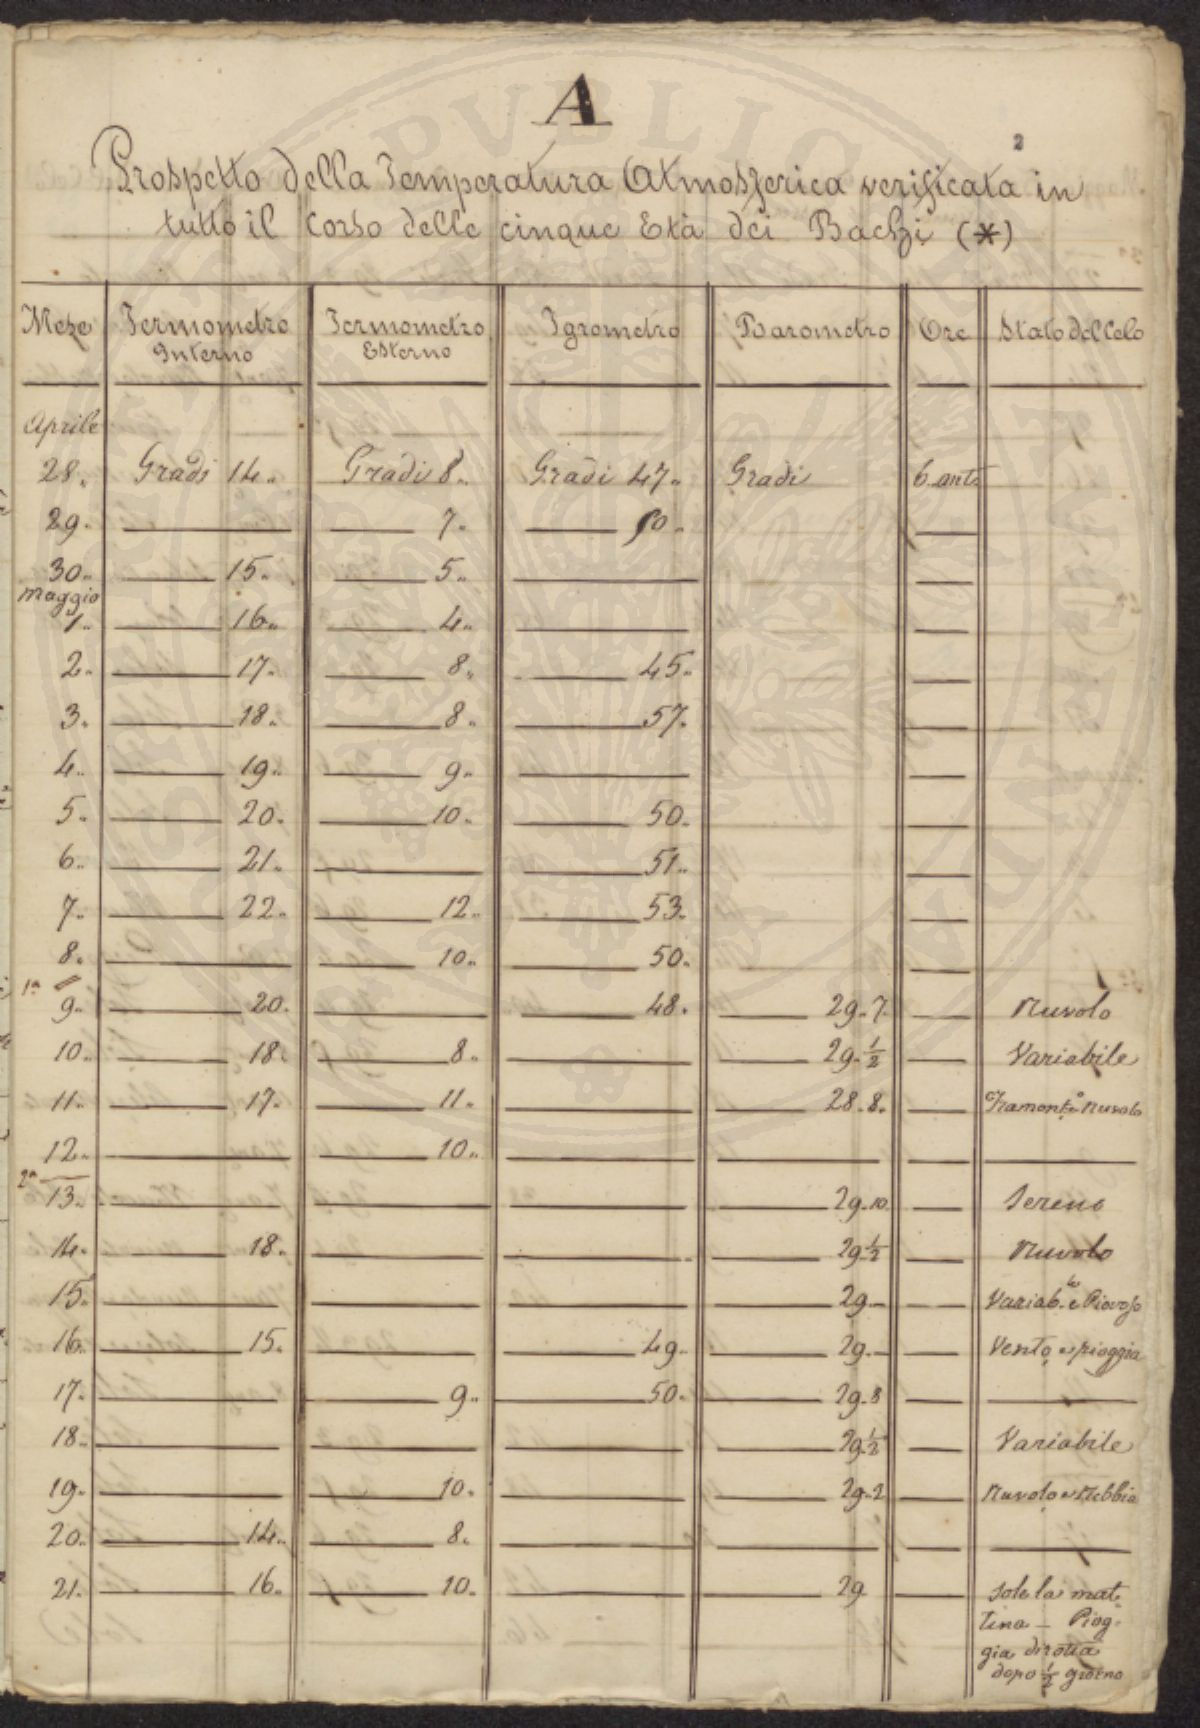 A
2
Prospetto della Temperatura Atmosferica verificata in
tutto il Corso delle cinque Età dei Bachi (*)
Mese Termometro Interno Termometro Esterno Igrometro Barometro Ore Stato del Celo
Aprile
28. Gradi 14. Gradi 8. Gradi 47. Gradi 6. ant.
29. — — 7. — 50. —
30. — 15. — 5. — —
Maggio
1. — 16. — 4. — —
2. — 17. — 8. — 45. —
3. — 18. — 8. — 57. —
4. — 19. — 9. — —
5. — 20. — 10. — 50. —
6. — 21. — — 51. —
7. — 22. — 12. — 53. —
8. — — 10. — 50. —
1ª
9. — 20. — — 48. — 29. 7. — Nuvolo
10. — 18. — 8. — — 29. ½ — Variabile
11. — 17. — 11. — — 28. 8. — Tramont.º e Nuvolo
12. — — 10. — — — —
2ª
13. — — — — 29. 10. — Sereno
14. — 18. — — — 29 ½ — Nuvolo
15. — — — — 29 — — Variab.le e Piovoso
16. — 15. — — 49. — 29. — — Vento e pioggia
17. — — 9. — 50. — 29. 8 — —
18. — — — — 29. ½ — Variabile
19. — — 10. — — 29. 2 — Nuvolo e Nebbia
20. — 14. — 8. — — — —
21. — 16. — 10. — — 29 — Sole la mat-
tina — Piog-
gia dirotta
dopo ½ giorno